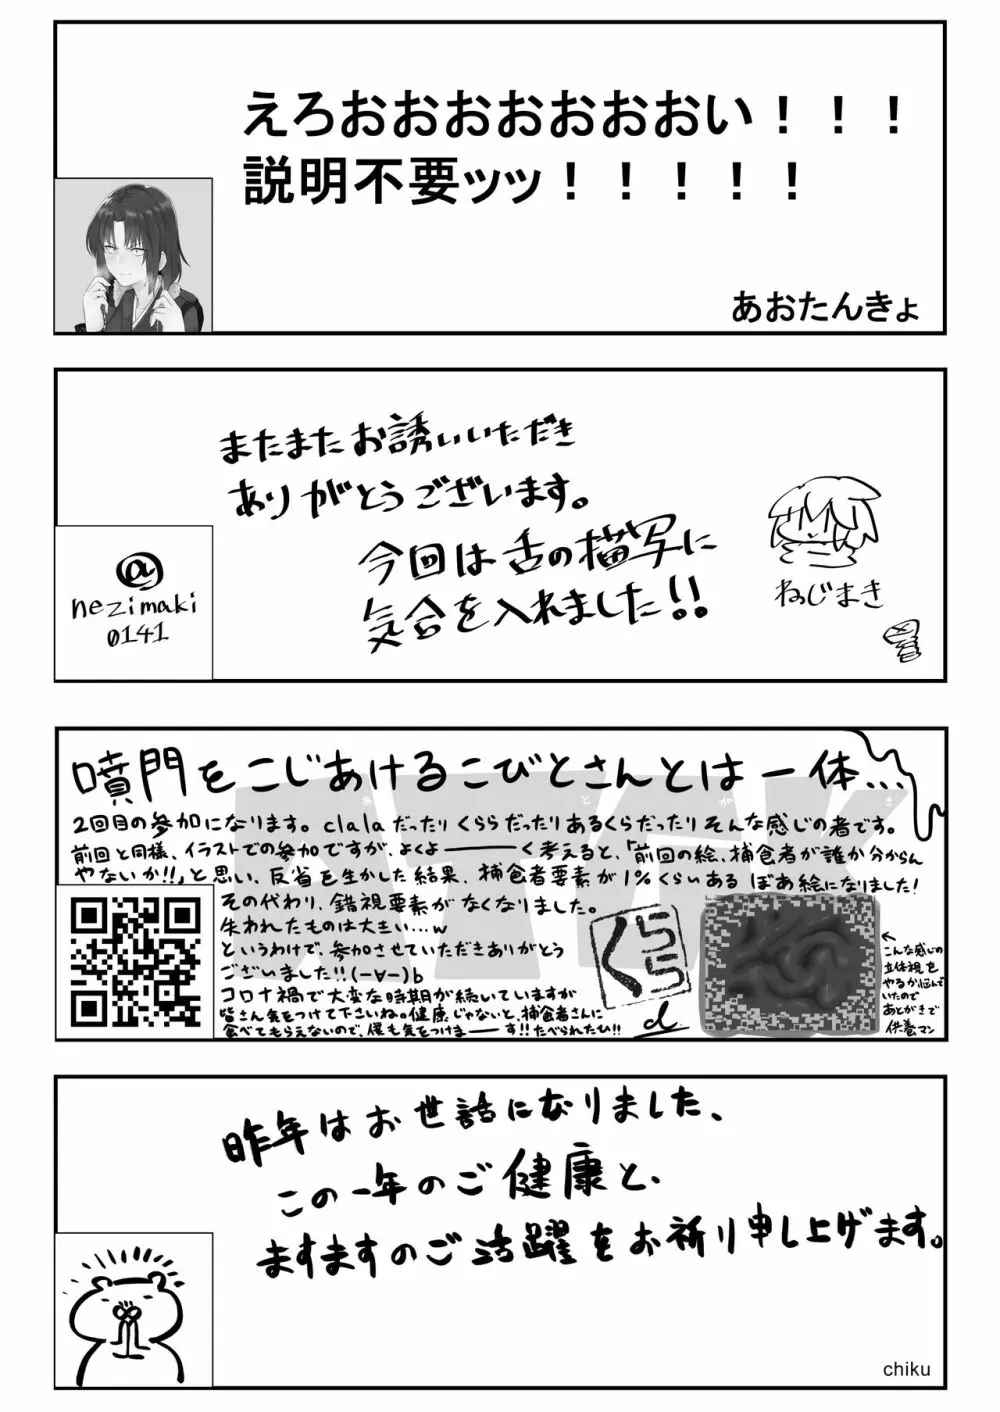 えろおおおおおおおい！！！
説明不要ッッ！！！！！
あおたんきょ
またまたお誘いいただき
ありがとうございます。
今回は舌の描写に
気合を入れました!!
ねじまき
@
nezimaki
0141
噴門をこじあけるこびとさんとは一体...
あとがき
2回目の参加になります。clalaだったりくららだったりあるくらだったりそんな感じの者です。
前回と同様、イラストでの参加ですが、よくよーーーく考えると、「前回の絵、捕食者が誰か分からん
やないか!!」と思い、反省を生かした結果、捕食者要素が1%くらいある ぼあ絵になりました!
その代わり、錯視要素がなくなりました。
失われたものは大きい...w
というわけで、参加させていただきありがとう
ございました!!(ー∀ー)b
コロナ禍で大変な時期が続いていますが
皆さん気をつけて下さいね。健康じゃないと、捕食者さんに
食べてもらえないので、僕も気をつけまーーす!!たべられたひ!!
くらら
d
←
こんな感じの
立体視を
やるか悩んで
いたので
あとがきで
供養マン
昨年はお世話になりました、
この一年のご健康と、
ますますのご活躍をお祈り申し上げます。
chiku